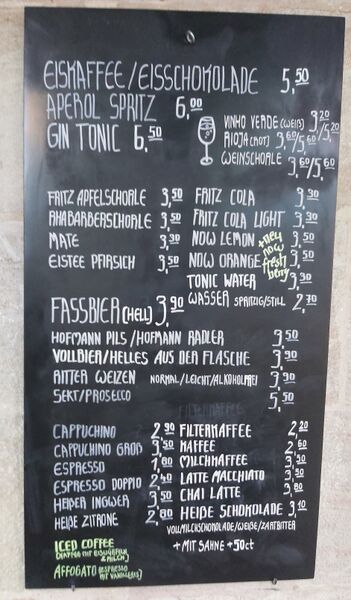 EISKAFFEE/EISSCHOKOLADE 5,50
APEROL SPRITZ 6,00
GIN TONIC 6,50
VINHO VERDE (WEIß) 3,20/5,20
RIOJA (ROT) 3,60/5,60
WEINSCHORLE 3,60/5,60
FRITZ APFELSCHORLE 3,50
RHABARBERSCHORLE 3,50
MATE 3,30
EISTEE PFIRSICH 3,50
FRITZ COLA 3,30
FRITZ COLA LIGHT 3,30
NOW LEMON 3,50
NOW ORANGE 3,50
+neu now fresh berry
TONIC WATER 3,30
WASSER SPRITZIG/STILL 2,70
FASSBIER (HELL) 3,90
HOFMANN PILS/HOFMANN RADLER 3,50
VOLLBIER/HELLES AUS DER FLASCHE 3,90
RITTER WEIZEN NORMAL/LEICHT/ALKOHOLFREI 3,90
SEKT/PROSECCO 5,50
FILTERKAFFEE
CAPPUCHINO 2,90
CAPPUCHINO GROß 3,50
ESPRESSO 1,80
ESPRESSO DOPPIO 2,40
HEIßER INGWER 3,50
HEIßE ZITRONE 2,80
FILTERKAFFEE 2,20
KAFFEE 2,60
MILCHKAFFEE 3,50
LATTE MACCHIATO 3,50
CHAI LATTE 3,80
HEIßE SCHOKOLADE 3,10
VOLLMILCHSCHOKOLADE/WEIßE/ZARTBITTER
+ MIT SAHNE +50ct
ICED COFFEE
& MILCH)
AFFOGATO (ESPRESSO
MIT VANILLEEIS)